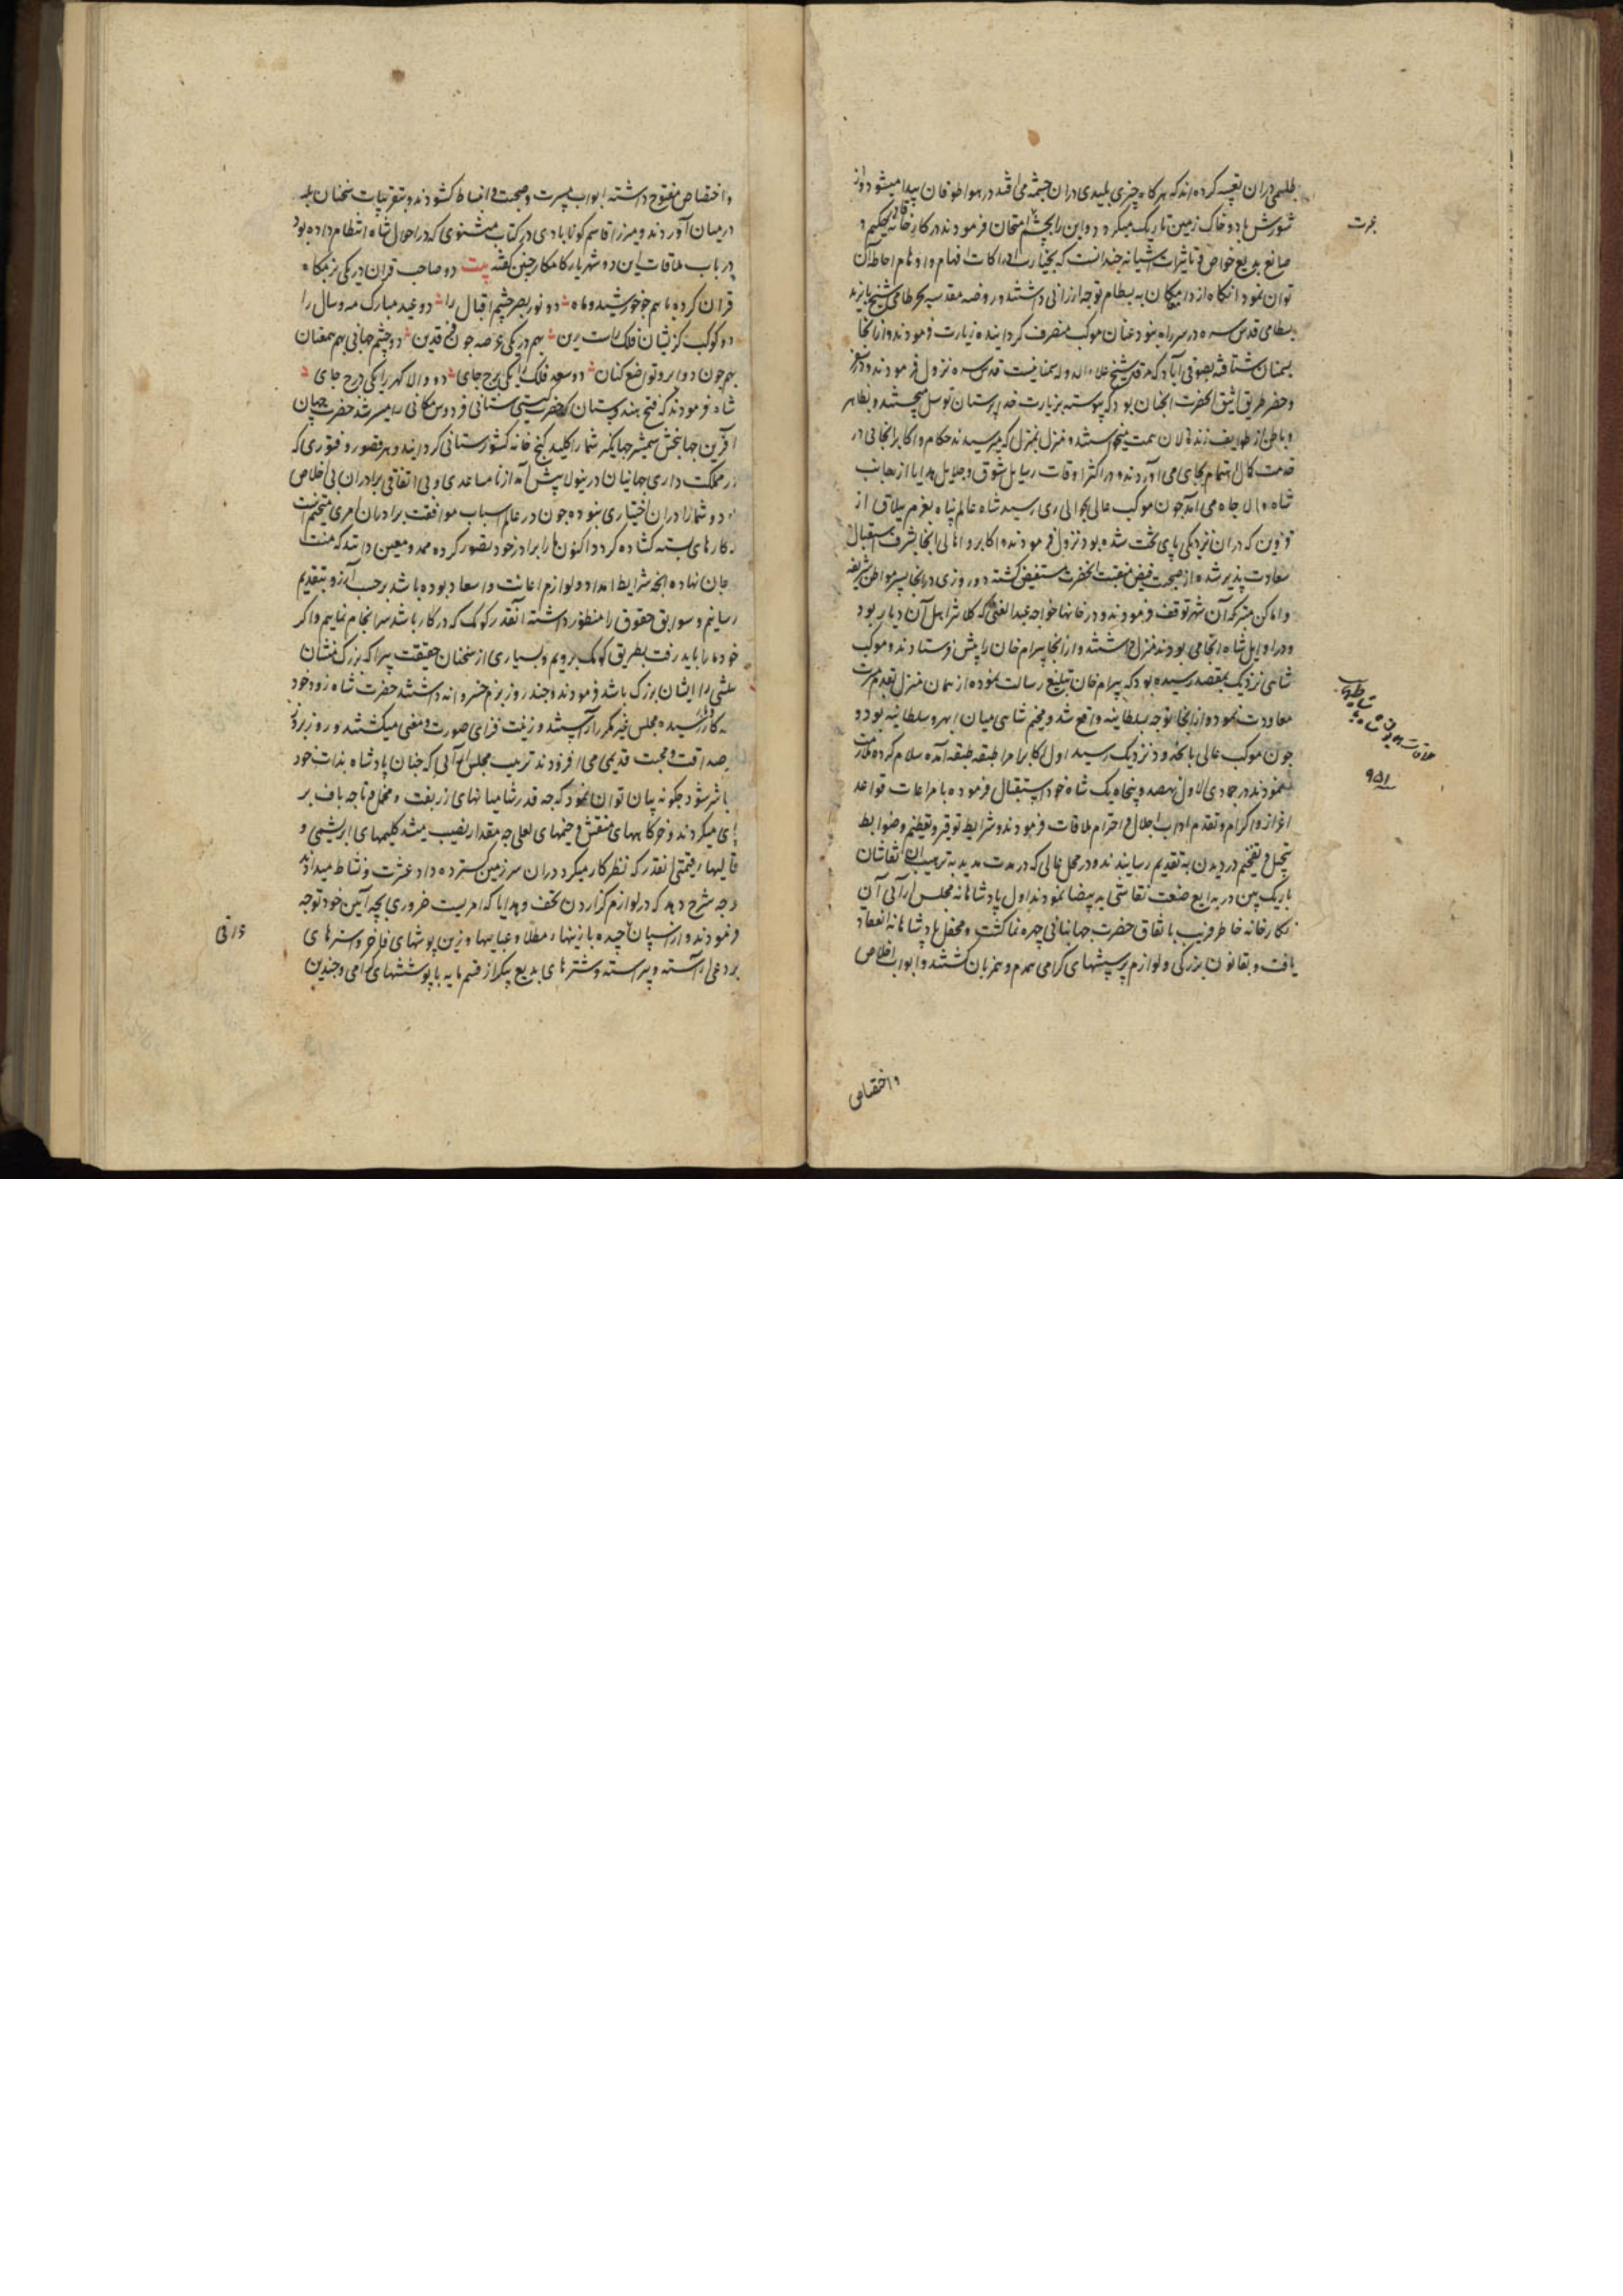 طلسمی در آن تعبیه کرده‌اند که هرکاه چیزی پلیدی در آن چشمه می‌افتد در هوا طوفان پیدا میشود و از
شورش باد و خاک زمین تاریک میکردد و این را بچشم امتحان فرمودند در کارخانه حکیم و
عبرت
صانع بدیع خواص و تاثیرات اشیا نه چندانست که بخیار ادراکات افهام و اوهام احاطه آن
توان نمود آنکاه از دامغان به بسطام توجه ارزانی داشتند و روضه مقدسه شیخ بایزید
بسطامی قدس سره در سر راه بنود عنان موکب منصرف کردانیده زیارت فرمودند و از آنجا
بسمنان شتافته بصوفی‌آباد که مرقد شیخ علاء الدوله سمنانیست قدس سره نزول فرمودند و در سفر
و حضر طریق انیق آنحضرت آنچنان بود که پیوسته بزیارت خداپرستان توسل میجستند و بظاهر
و باطن از طوایف زنده‌دلان همت میخواستند و منزل بمنزل که میرسیدند حکام و اکابر آنجا در
خدمت کمال اهتمام بجای می‌آوردند و در اکثر اوقات رسایل شوق و جلایل هدایا از جانب
شاه والا جاه می‌آمد چون موکب عالی بحوالی ری رسید شاه عالم پناه بعزم ییلاق از
قزوین که در آن نزدیکی پای تخت شده بود نزول فرمودند و اکابر و اهالی آنجا بشرف استقبال
سعادت پذیر شده از صحبت فیض منقبت آنحضرت مستفیض کشته دو روزی در آنجا بسیر مواطن شریفه
و اماکن متبرکه آن شهر توقف فرمودند و در خانها خواجه عبدالغنی که کلانتر اهل آن دیار بود
و در اوایل شاه آنجا می‌بودند منزل داشتند و از آنجا بیرام خان را پیش فرستادند و موکب
شاهی نزدیک بمقصد رسیده بود که بیرام خان تبلیغ رسالت نموده از همان منزل بقدم سرعت
معاودت نمود و از آنجا توجه بسلطانیه واقع شد و مخیم شاهی میان ابهر و سلطانیه بود و
ملاقات همایون پادشاه با شاه طهماسب
چون موکب عالی بآنحدود نزدیک رسید اول اکابر امرا طبقه طبقه آمده سلام کرده ملازمت
نمودند در جمادی الاول نهصد و پنجاه یک شاه خود استقبال فرموده با مراعات قواعد
٩٥١
اعزاز و اکرام و تقدم آداب اجلال و احترام ملاقات فرمودند و شرایط توقیر و تعظیم و ضوابط
تبجیل و تفخیم در دیدن به تقدیم رسانیدند و در محل عالی که در مدت مدید به ترتیب آن نقاشان
باریک بین در بدایع صنعت نقاشی ید بیضا نمودند اول پادشاهانه مجلس آرائی آن
نکارخانه خاطر فریب باتفاق حضرت جهانبانی چهره نما کشت و محفل پادشاهانه انعقاد
یافت و بقانون بزرکی و لوازم پرسشهای کرامی همدم و همزبان کشتند و ابواب اخلاص
و اختصاص
و اختصاص مفتوح داشته ابواب مسرت و صحبت و انبساط کشودند و بتقریبات سخنان بلند
در میان آوردند و میرزا قاسم کونابادی در کتاب مثنوی که در احوال شاه انتظام داده بود
در باب ملاقات این دو شهریار کامکار چنین کفته بیت دو صاحب قران در یکی بزمکاه
قران کرده با هم چو خورشید و ماه دو نور بصر چشم اقبال را دو عید مبارک مه و سال را
دو کوکب کزیشان فلک راست زین بهم در یکی عرصه چون فرقدین دو چشم جهانی بهم همعنان
بهم چون دو ابرو تواضع کنان دو سعد فلک را یکی برج جای دو والا کهر را یکی درج جای
شاه فرمودند که فتح هندوستان که حضرت کیتی ستانی فردوس مکانی را میسر شد حضرت جهان
آفرین جهانبخش شمشیر جهانکیر شما را کلید کنج خانه کشورستانی کردانید و هر قصور و فتوری که
در مملکت داری جهانیان درینولا پیش آمد از نامساعدی و بی اتفاقی برادران بی اخلاص
بود و شما را در آن اختیاری نبوده چون در عالم اسباب موافقت برادران امری متحتم است
کارهای بسته کشاده کردد اکنون ما را برادر خود تصور کرده ممد و معین دانند که منت
جان نهاده آنچه شرایط امداد و لوازم اعانت و اسعاد بوده باشد بر حسب آرزو بتقدیم
رسانیم و سوابق حقوق را منظور داشته آنقدر کومک که در کار باشد سرانجام نماییم و اکر
خود ما را باید رفت بطریق کومک برویم و بسیاری از سخنان حقیقت پیرا که بزرک منشان
باشد را ایشان بزرک باشد فرمودند و چند روز بزم خسروانه داشتند حضرت شاه زود خود
بکار رسیده مجلس غیر مکرر آراستند و زینت فزای صورت و معنی میکشتند و روز بروز
صداقت و محبت قدیمی می افزودند ترتیب مجلس آلی که چنان پادشاه بذات خود
باشر شود چکونه بیان توان نمود که چه قدر شامیانهای زربفت و مخمل و تاجه باف بر
پای میکردند و خرکاههای منقش و خیمهای لعلی چه مقدار نصب میشد کلیمهای ابریشمی و
قالیهاء قیمتی آنقدر که نظر کار میکرد در آن سرزمین کسترده داد عشرت و نشاط میدادند
و چه شرح دهد که در لوازم کزاردن تحف و هدایا که امریست ضروری بچه آیین خود توجه
فرمودند و از اسپان چیده با زینهاء مطلا و عباییها و زین پوشهای فاخر و استرهای
بردعی آراسته و پیراسته و شترهای بدیع پیکر از قسم مایه با پوششهای کرامی و چندین